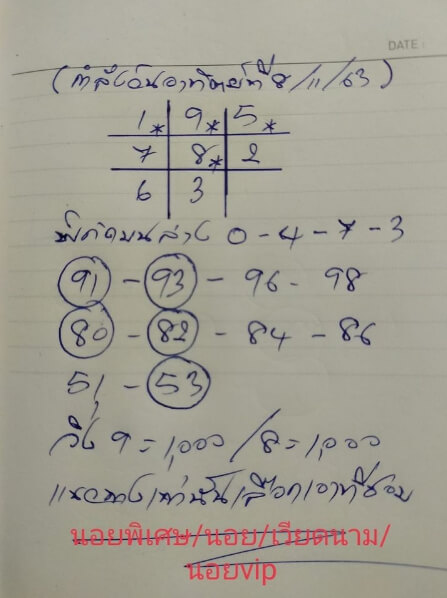 DATE:
(กำลังวันอาทิตย์ที่ 8/11/63)
1* 9* 5*
7 8* 2
6 3
พิกัดบนล่าง 0-4-7-3
91 - 93 - 96 - 98
80 - 82 - 84 - 86
51 - 53
วิ่ง 9 = 1,000 / 8 = 1,000
แนวทางเท่านั้นเลือกเอาที่ชอบ
นอยพิเศษ/นอย/เวียดนาม/
นอยvip